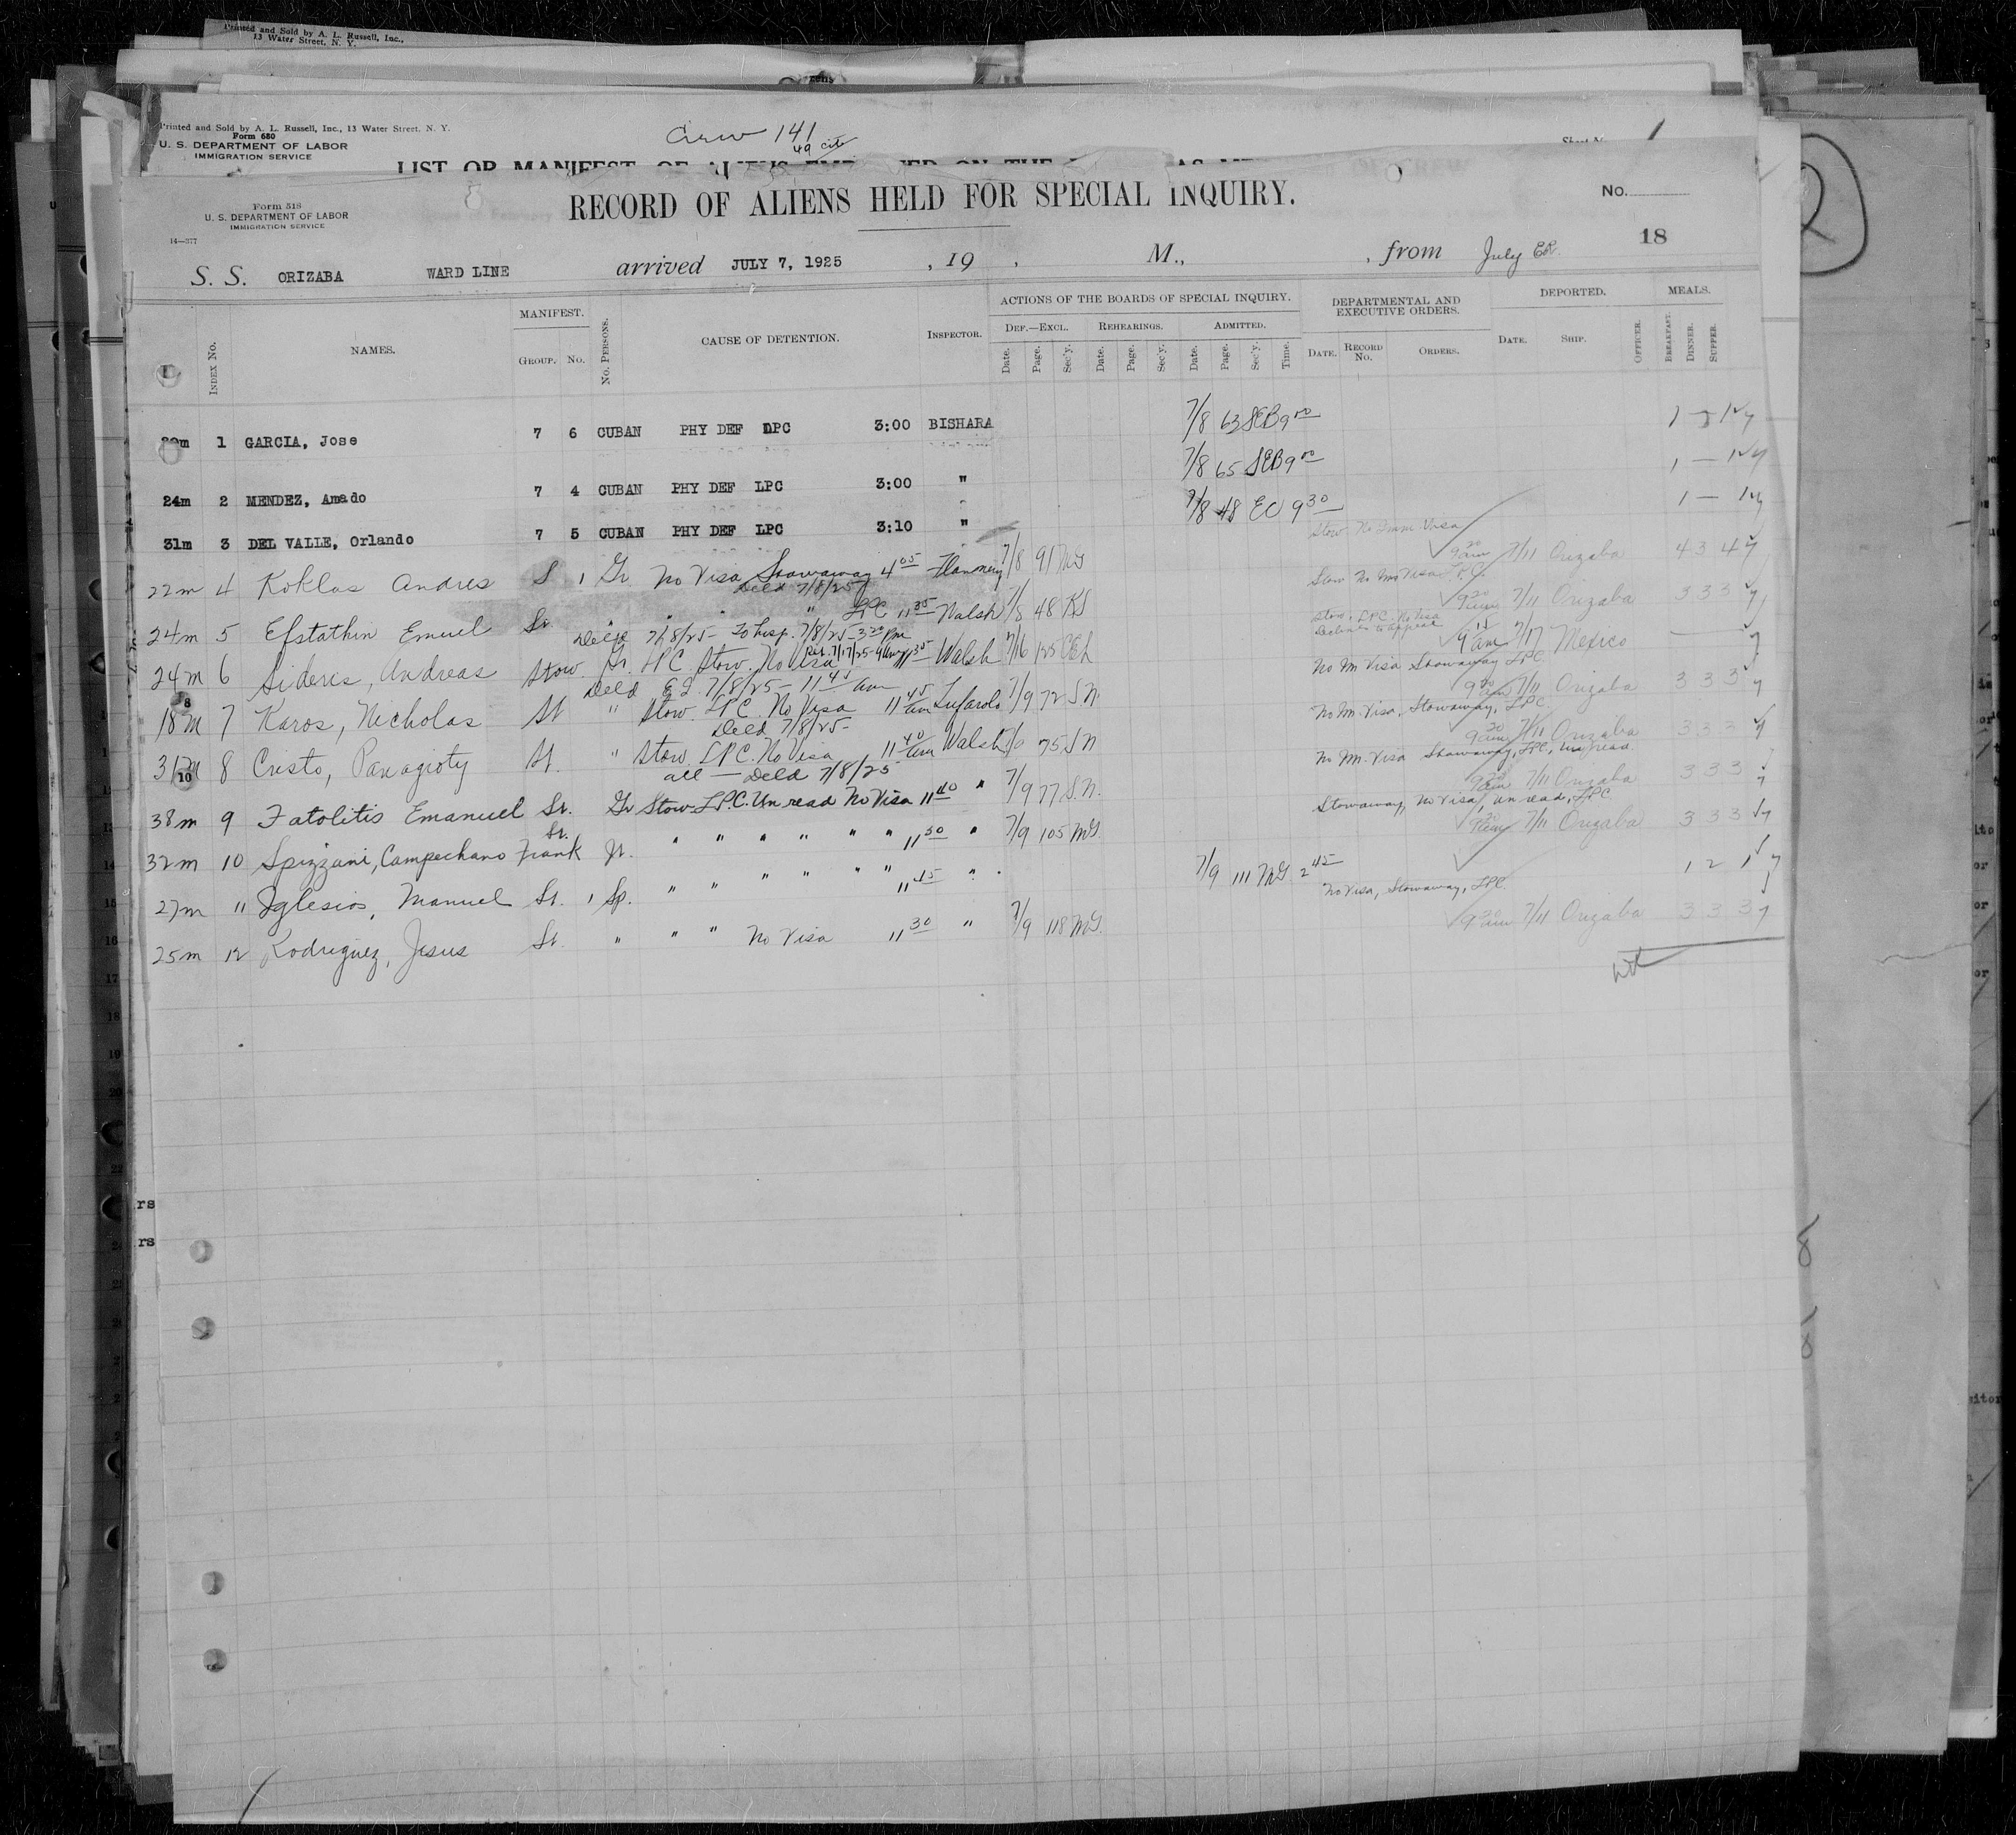 Printed and Sold by A. L. Russell, Inc.,
13 Water Street, N. Y.
Printed and Sold by A. L. Russell, Inc., 13 Water Street, N. Y.
Form 680
U. S. DEPARTMENT OF LABOR
IMMIGRATION SERVICE
Crew 141
49 cit
1
LIST OR MANIFEST OF ALIENS
2
Form 518
U. S. DEPARTMENT OF LABOR
IMMIGRATION SERVICE
14—377
RECORD OF ALIENS HELD FOR SPECIAL INQUIRY.
No.
18
S. S. ORIZABA WARD LINE arrived JULY 7, 1925 , 19 , M., , from July ER.
INDEX No. NAMES. MANIFEST. GROUP. No. No. PERSONS. CAUSE OF DETENTION. INSPECTOR.
ACTIONS OF THE BOARDS OF SPECIAL INQUIRY. DEF.—EXCL. REHEARINGS. ADMITTED.
Date. Page. Sec'y. Date. Page. Sec'y. Date. Page. Sec'y. Time.
DEPARTMENTAL AND EXECUTIVE ORDERS. DATE. RECORD No. ORDERS.
DEPORTED. DATE. SHIP. OFFICER. MEALS. BREAKFAST. DINNER. SUPPER.
1 GARCIA, Jose 7 6 CUBAN PHY DEF LPC 3:00 BISHARA 7/8 63 SEB 9 00
24m 2 MENDEZ, Amado 7 4 CUBAN PHY DEF LPC 3:00 " 7/8 65 SEB 9 00 1 — 1
31m 3 DEL VALLE, Orlando 7 5 CUBAN PHY DEF LPC 3:10 " 7/8 48 EC 9 30 1 — 1
Stow. No Imm Visa
22m 4 Koklas Andres S 1 Gr. No Visa Stowaway 4 05 Flannery 7/8 91 MG 9 20 am 7/11 Orizaba 4 3 4
Deld 7/8/25
24m 5 Efstathin Emuel St. " " " LPC 11 35 Walsh 7/8 48 KS 9 20 am 7/11 Orizaba 3 3 3
Deld 7/8/25 - To hosp. 7/8/25 - 3 20 pm
Stow, LPC. No Visa
24m 6 Sideres, Andreas Stow. Gr. LPC Stow. No Visa 11 35 Walsh 7/16 125 CEL 9 15 am 7/17 Mexico
Deld E.I. 7/8/25 - 11 45 am
No Im. Visa Stowaway LPC
18m 7 Karos, Nicholas St " Stow. LPC. No Visa 11 45 am Lufarolo 7/9 72 S.N. 9 20 am 7/11 Orizaba 3 3 3
Deld 7/8/25-
No Im. Visa, Stowaway, LPC
8 Cristo, Panagioty St. " Stow. LPC. No Visa 11 40 am Walsh 75 S N 9 20 am 7/11 Orizaba 3 3 3
all — Deld 7/8/25
No Im. Visa Stowaway, LPC, un read.
38m 9 Fatolitis Emanuel St. Gr Stow. L.P.C. Un read No Visa 11 40 " 7/9 77 S.N. 9 20 am 7/11 Orizaba 3 3 3
Stowaway, No Visa, un read, LPC
32m 10 Spizzani, Campechano Frank St. " " " " " " 11 50 " 7/9 105 MG. 9 20 am 7/11 Orizaba 3 3 3
27m 11 Iglesios, Manuel St. 1 Sp. " " " " " " 11 45 " 7/9 111 MG. 2 45 1 2 1
No Visa, Stowaway, LPC.
25m 12 Rodriguez, Jesus St. " " " No Visa 11 30 " 7/9 118 MG. 9 20 am 7/11 Orizaba 3 3 3
rs
rs